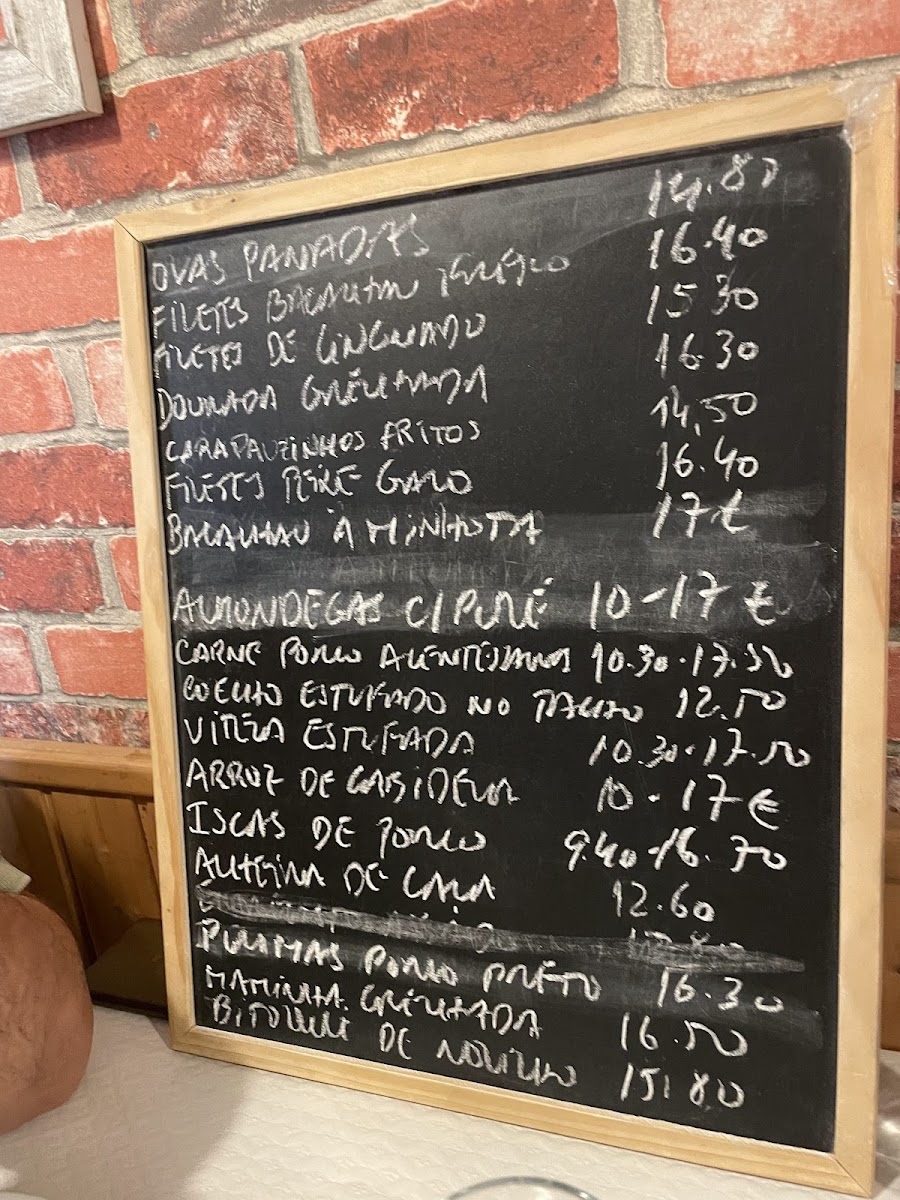 OVAS PANADAS 14.80
FILETES BACALHAU FRESCO 16.40
FILETES DE LINGUADO 15.30
DOURADA GRELHADA 16.30
CARAPAUZINHOS FRITOS 14,50
FILETES PEIXE GALO 16.40
BACALHAU À MINHOTA 17€
ALMONDEGAS C/ PURÉ 10-17€
CARNE PORCO ALENTEJANA 10.30-17.50
COELHO ESTUFADO NO TACHO 12.50
VITELA ESTUFADA 10.30-17.50
ARROZ DE CABIDELA 10-17€
ISCAS DE PORCO 9.40-16.70
ALHEIRA DE CAÇA 12.60
PLUMAS PORCO PRETO 16.30
MAMINHA GRELHADA 16.50
BITOQUE DE NOVILHO 15.80